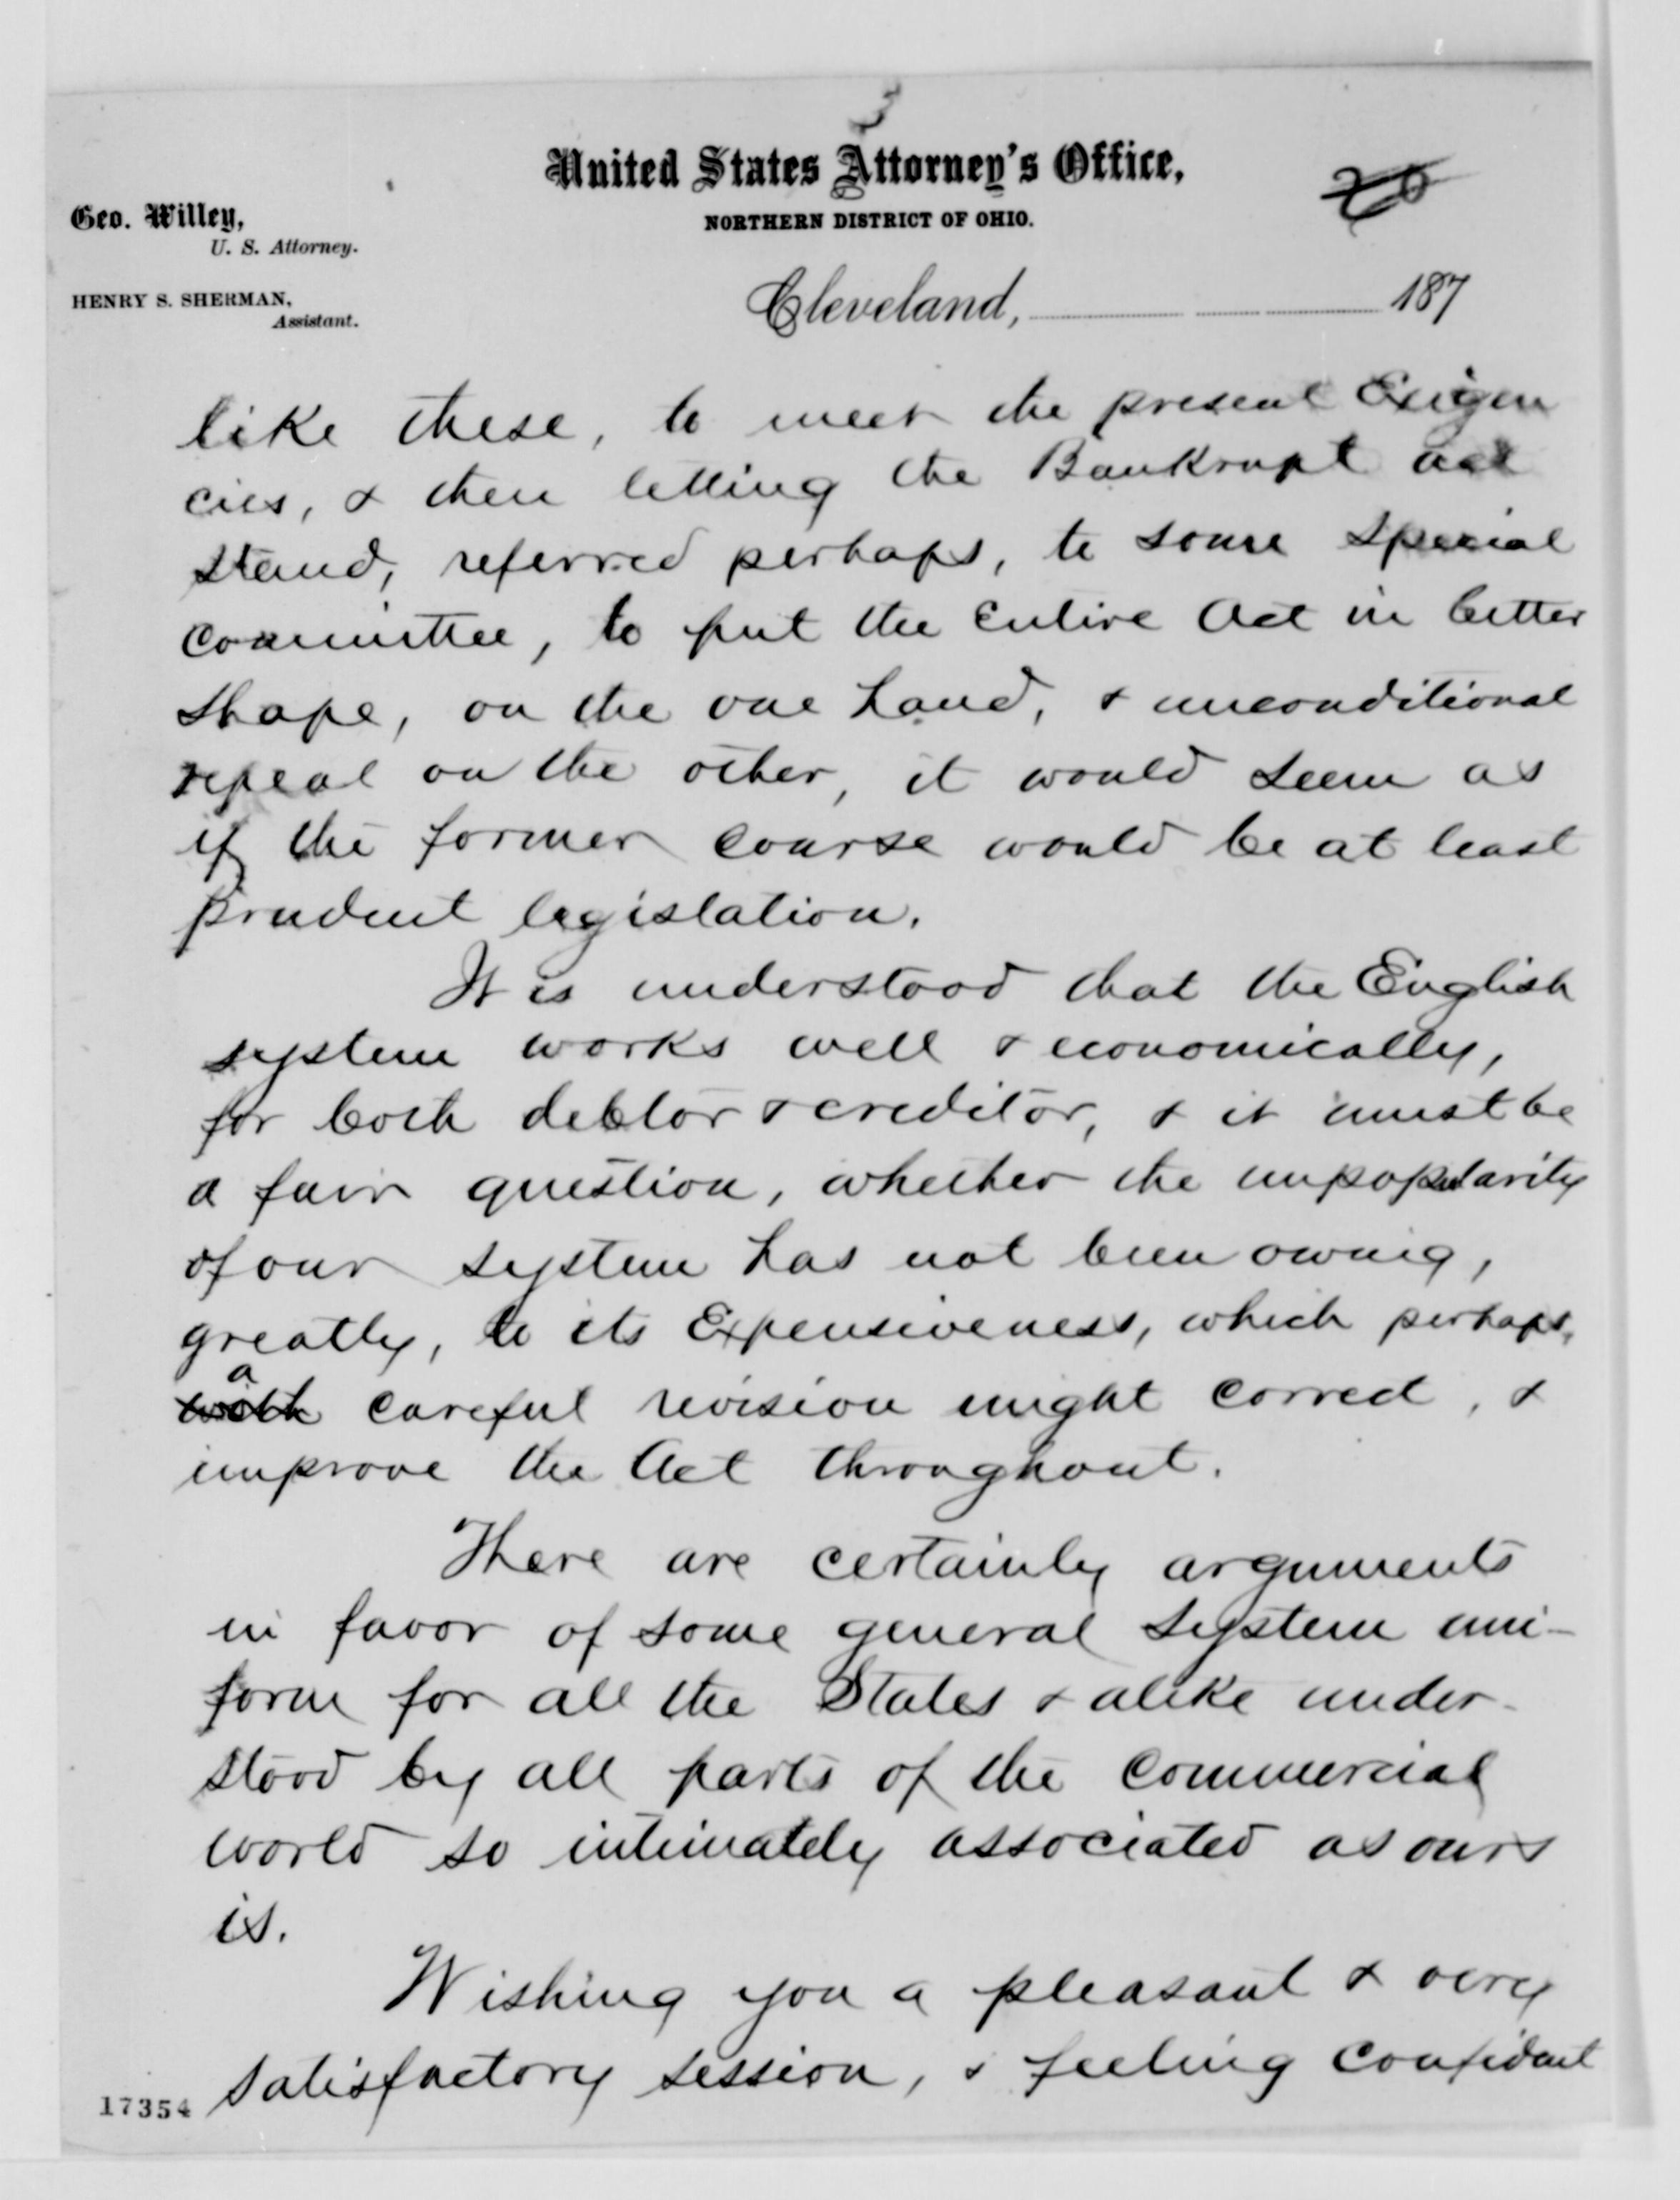 3
United States Attorney's Office,
NORTHERN DISTRICT OF OHIO.
20
Geo. Willey,
U. S. Attorney.
HENRY S. SHERMAN,
Assistant.
Cleveland, 187
like these, to meet the present Exigen
cies, & then letting the Bankrupt act
stand, referred perhaps, to some special
committee, to put the entire Act in better
shape, on the one hand, & unconditional
repeal on the other, it would seem as
if the former course would be at least
prudent legislation.
It is understood that the English
system works well & economically,
for both debtor & creditor, & it must be
a fair question, whether the unpopularity
of our system has not been owing,
greatly, to its Expensiveness, which perhaps,
a
with careful revision might correct, &
improve the Act throughout.
There are certainly arguments
in favor of some general system uni-
form for all the States & alike under-
stood by all parts of the commercial
world so intimately associated as ours
is.
Wishing you a pleasant & very
satisfactory session, & feeling confident
17354